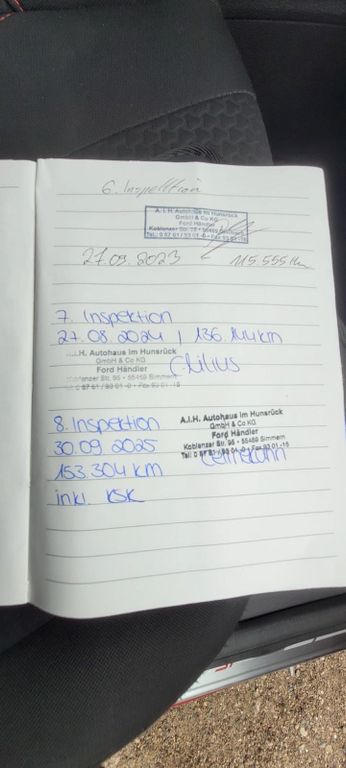 6. Inspektion
A.I.H. Autohaus im Hunsrück
GmbH & Co KG
Ford Händler
Koblenzer Str. 95 • 55469 Simmern
Tel.: 0 67 61 / 93 01 -0 • Fax 93 01 -15
27.09.2023 115.555 km
7. Inspektion
27.08.2024 / 136.144 km
A.I.H. Autohaus im Hunsrück
GmbH & Co KG
Ford Händler
Koblenzer Str. 95 • 55469 Simmern
0 67 61 / 93 01 -0 • Fax 93 01 -15
8. Inspektion
A.I.H. Autohaus im Hunsrück
GmbH & Co KG
Ford Händler
Koblenzer Str. 95 • 55469 Simmern
Tel: 0 67 61 / 93 01 -0 • Fax 93 01 -15
30.09.2025
153.304 km
inkl. KSK